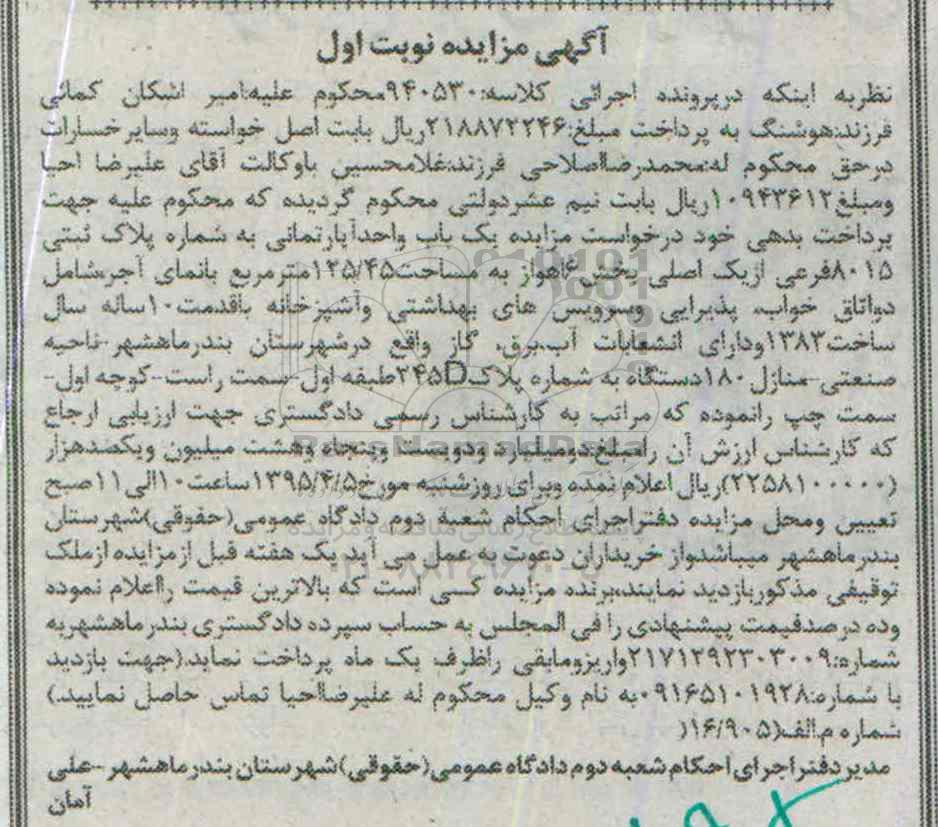 آگهی مزایده نوبت اول
نظربه اینکه درپرونده اجرائی کلاسه:۹۴۰۵۳۰محکوم علیه:امیر اشکان کمائی
فرزند:هوشنگ به پرداخت مبلغ:۲۱۸۸۷۲۲۴۶ریال بابت اصل خواسته وسایر خسارات
درحق محکوم له:محمدرضااصلاحی فرزند:غلامحسین باوکالت آقای علیرضا احیا
ومبلغ۱۰۹۴۳۶۱۲ریال بابت نیم عشردولتی محکوم گردیده که محکوم علیه جهت
پرداخت بدهی خود درخواست مزایده یک باب واحدآپارتمانی به شماره پلاک ثبتی
۸۰۱۵فرعی ازیک اصلی بخش۶اهواز به مساحت۱۲۵/۴۵مترمربع بانمای آجر،شامل
دواتاق خواب، پذیرایی وسرویس های بهداشتی وآشپزخانه باقدمت۱۰ساله سال
ساخت۱۳۸۳ودارای انشعابات آب،برق، گاز واقع درشهرستان بندرماهشهر-ناحیه
صنعتی-منازل۱۸۰دستگاه به شماره پلاک۲۴۵Dطبقه اول-سمت راست-کوچه اول-
سمت چپ رانموده که مراتب به کارشناس رسمی دادگستری جهت ارزیابی ارجاع
که کارشناس ارزش آن رامبلغ:دومیلیارد ودویست وپنجاه وهشت میلیون ویکصدهزار
(۲۲۵۸۱۰۰۰۰۰)ریال اعلام نمده وبرای روزشنبه مورخ۱۳۹۵/۴/۵ساعت۱۰الی۱۱صبح
تعیین ومحل مزایده دفتراجرای احکام شعبه دوم دادگاه عمومی(حقوقی)شهرستان
بندرماهشهر میباشدواز خریداران دعوت به عمل می آید یک هفته قبل ازمزایده ازملک
توقیفی مذکوربازدید نمایند،برنده مزایده کسی است که بالاترین قیمت رااعلام نموده
وده درصدقیمت پیشنهادی را فی المجلس به حساب سپرده دادگستری بندرماهشهربه
شماره:۲۱۷۱۲۹۲۳۰۳۰۰۹واریزومابقی راظرف یک ماه پرداخت نماید.(جهت بازدید
با شماره:۰۹۱۶۵۱۰۱۹۲۸به نام وکیل محکوم له علیرضااحیا تماس حاصل نمایید.)
شماره م.الف(۱۶/۹۰۵(
مدیردفتراجرای احکام شعبه دوم دادگاه عمومی(حقوقی)شهرستان بندرماهشهر-علی
آمان
ParsNamadData